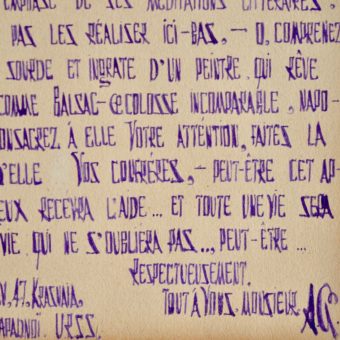 EMPHASE DE SES MÉDITATIONS LITTÉRAIRES,
PAS LES RÉALISER ICI-BAS, — O, COMPRENEZ
SOURDE ET INGRATE D'UN PEINTRE, QUI RÊVE
COMME BALSAC — CE COLOSSE INCOMPARABLE, NAPO-
ONSACREZ À ELLE VOTRE ATTÉNTION, FAITES LA
D'ELLE VOS CONFRÉRES, — PEUT-ÊTRE CET AP-
EUX RECEVRA L'AIDE... ET TOUTE UNE VIE SERA
VIE QUI NE S'OUBLIERA PAS... PEUT-ÊTRE...
RESPECTUEUSEMENT.
TOUT À VOUS, MONSIEUR
V, 47, KRASNAIA,
APADNOÏ. URSS.